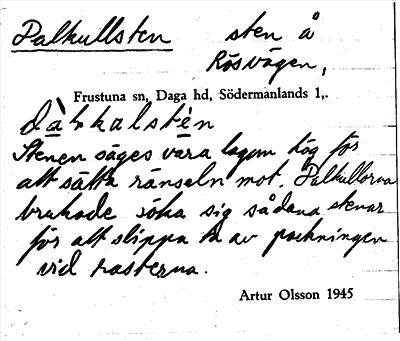 Palkullsten sten å
Rösvägen,
Frustuna sn, Daga hd, Södermanlands l,.
Stenen säges vara lagom hög för
att sätta ränseln mot. Palkullorna
brukade söka sig sådana stenar
för att slippa ta av packningen
vid rasterna.
Artur Olsson 1945